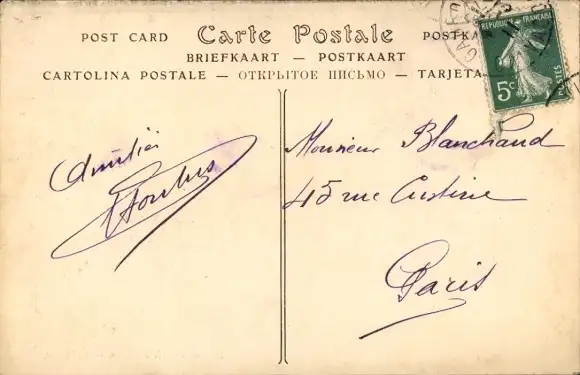 POST CARD Carte Postale POSTKA
BRIEFKAART — POSTKAART
CARTOLINA POSTALE — ОТКРЫТОЕ ПИСЬМО — TARJETA
RÉPUBLIQUE FRANÇAISE
5c
POSTES
Amitiés
Monsieur Blanchaud
45 rue Custine
Paris